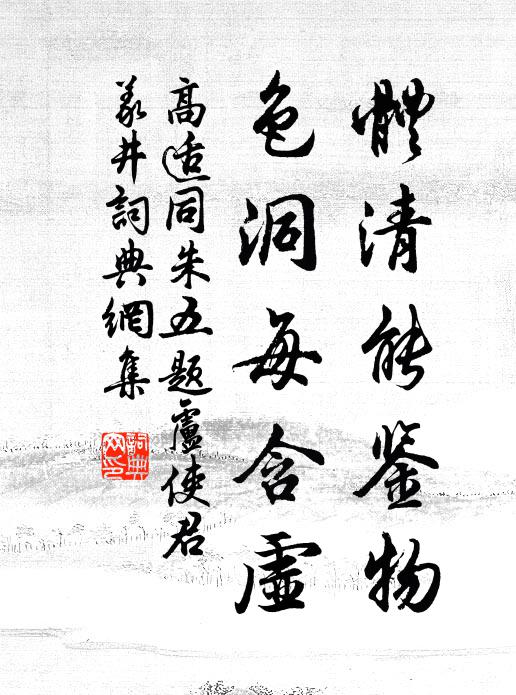 體清能鉴物
色洞每含虛
高适同朱五题盧使君
義井詞典網集
詞典网印